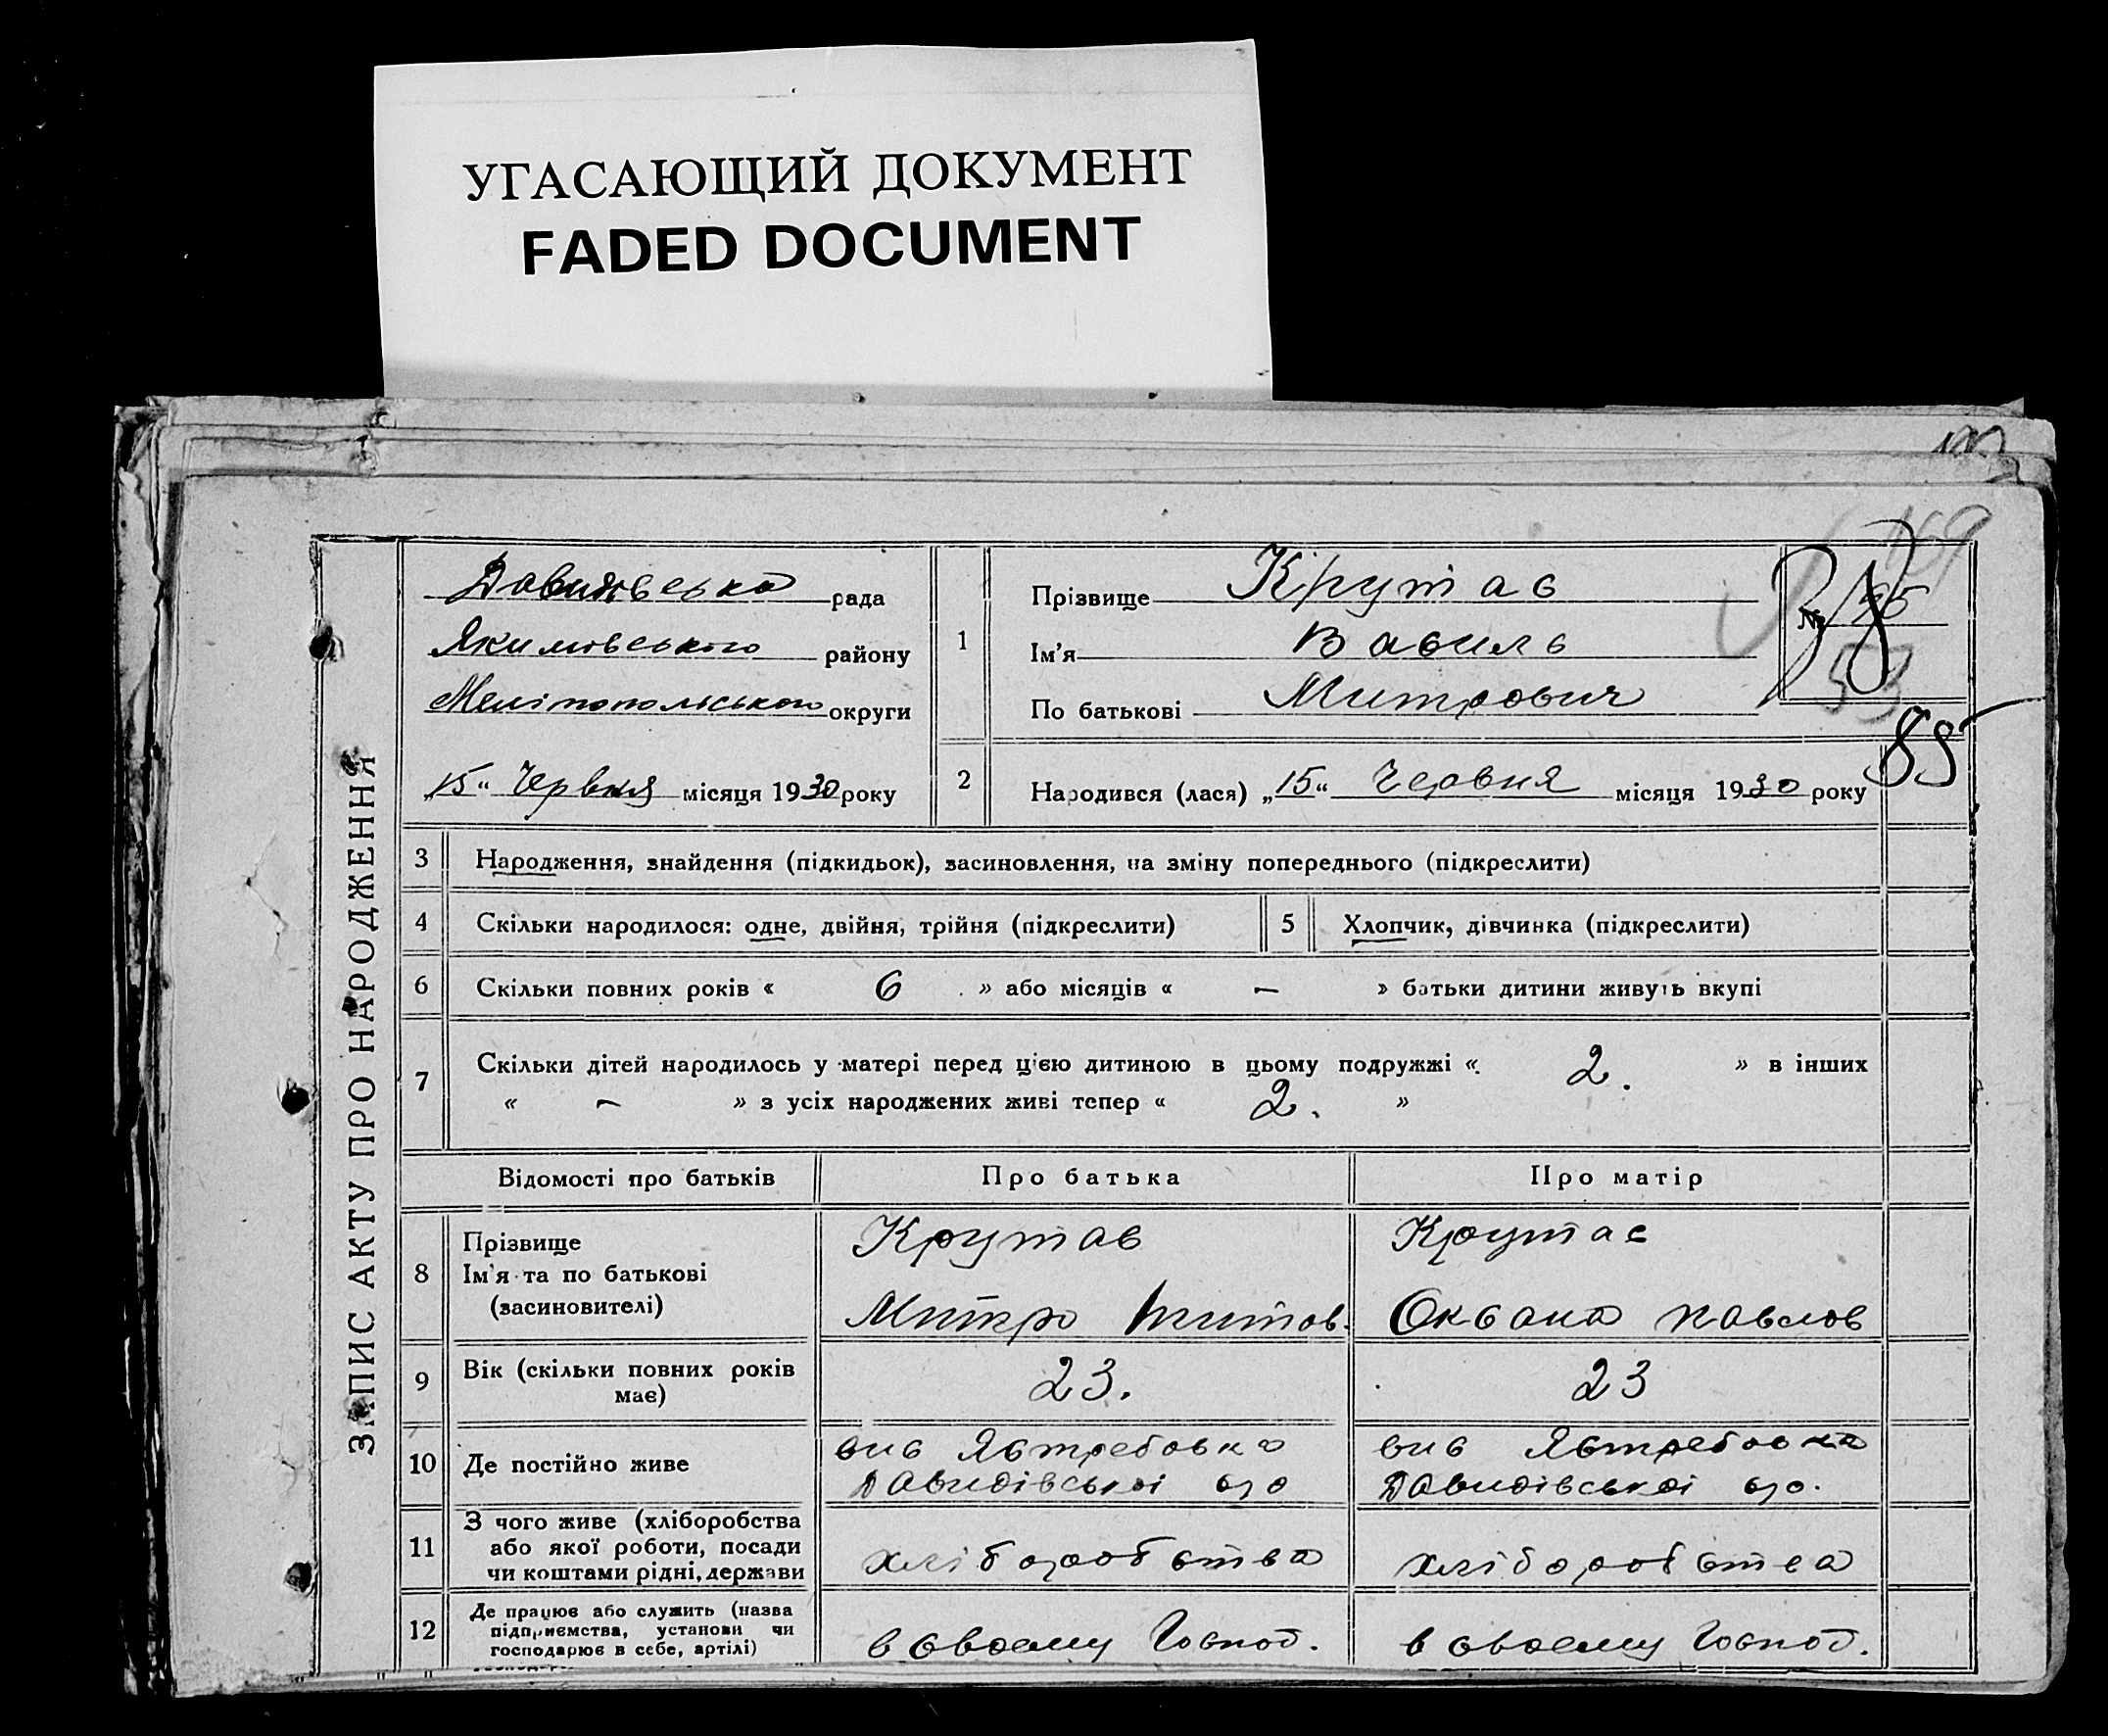 УГАСАЮЩИЙ ДОКУМЕНТ
FADED DOCUMENT
ЗАПИС АКТУ ПРО НАРОДЖЕННЯ
Давидівська рада
Якимівського району
Мелітопольського округи
„15“ Червня місяця 1930 року
1
Прізвище Крутас
Ім'я Василь
По батькові Митрович
№ 95
38
53
85
2 Народився (лася) „15“ Червня місяця 1930 року
3 Народження, знайдення (підкидьок), засиновлення, на зміну попереднього (підкреслити)
4 Скільки народилося: одне, двійня, трійня (підкреслити) 5 Хлопчик, дівчинка (підкреслити)
6 Скільки повних років « 6 » або місяців « — » батьки дитини живуть вкупі
7 Скільки дітей народилось у матері перед цією дитиною в цьому подружжі « 2. » в інших
« — » з усіх народжених живі тепер « 2. »
Відомості про батьків Про батька Про матір
8 Прізвище Крутас Крутас
Ім'я та по батькові
(засиновителі) Митро Титов. Оксана Павлов
9 Вік (скільки повних років має) 23. 23
10 Де постійно живе
вис Ястребовка вис Ястребовка
Давидівської с/р Давидівської с/р.
11 З чого живе (хліборобства
або якої роботи, посади
чи коштами рідні, держави
хліборобства хліборобства
12 Де працює або служить (назва
підприємства, установи чи
господарює в себе, артілі)
в своему Господ. в своему Господ.